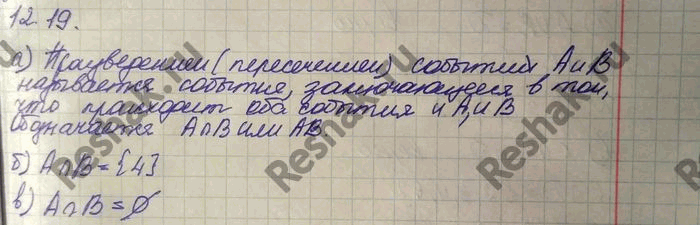 12.19.
а) Произведением (пересечением) событий А и В
называется событие, заключающееся в том,
что происходит оба события и А, и В
Обозначается A∩B или AB.
б) A∩B = {4}
в) A∩B = ∅
Reshak.ru
Reshak.ru
Reshak.ru